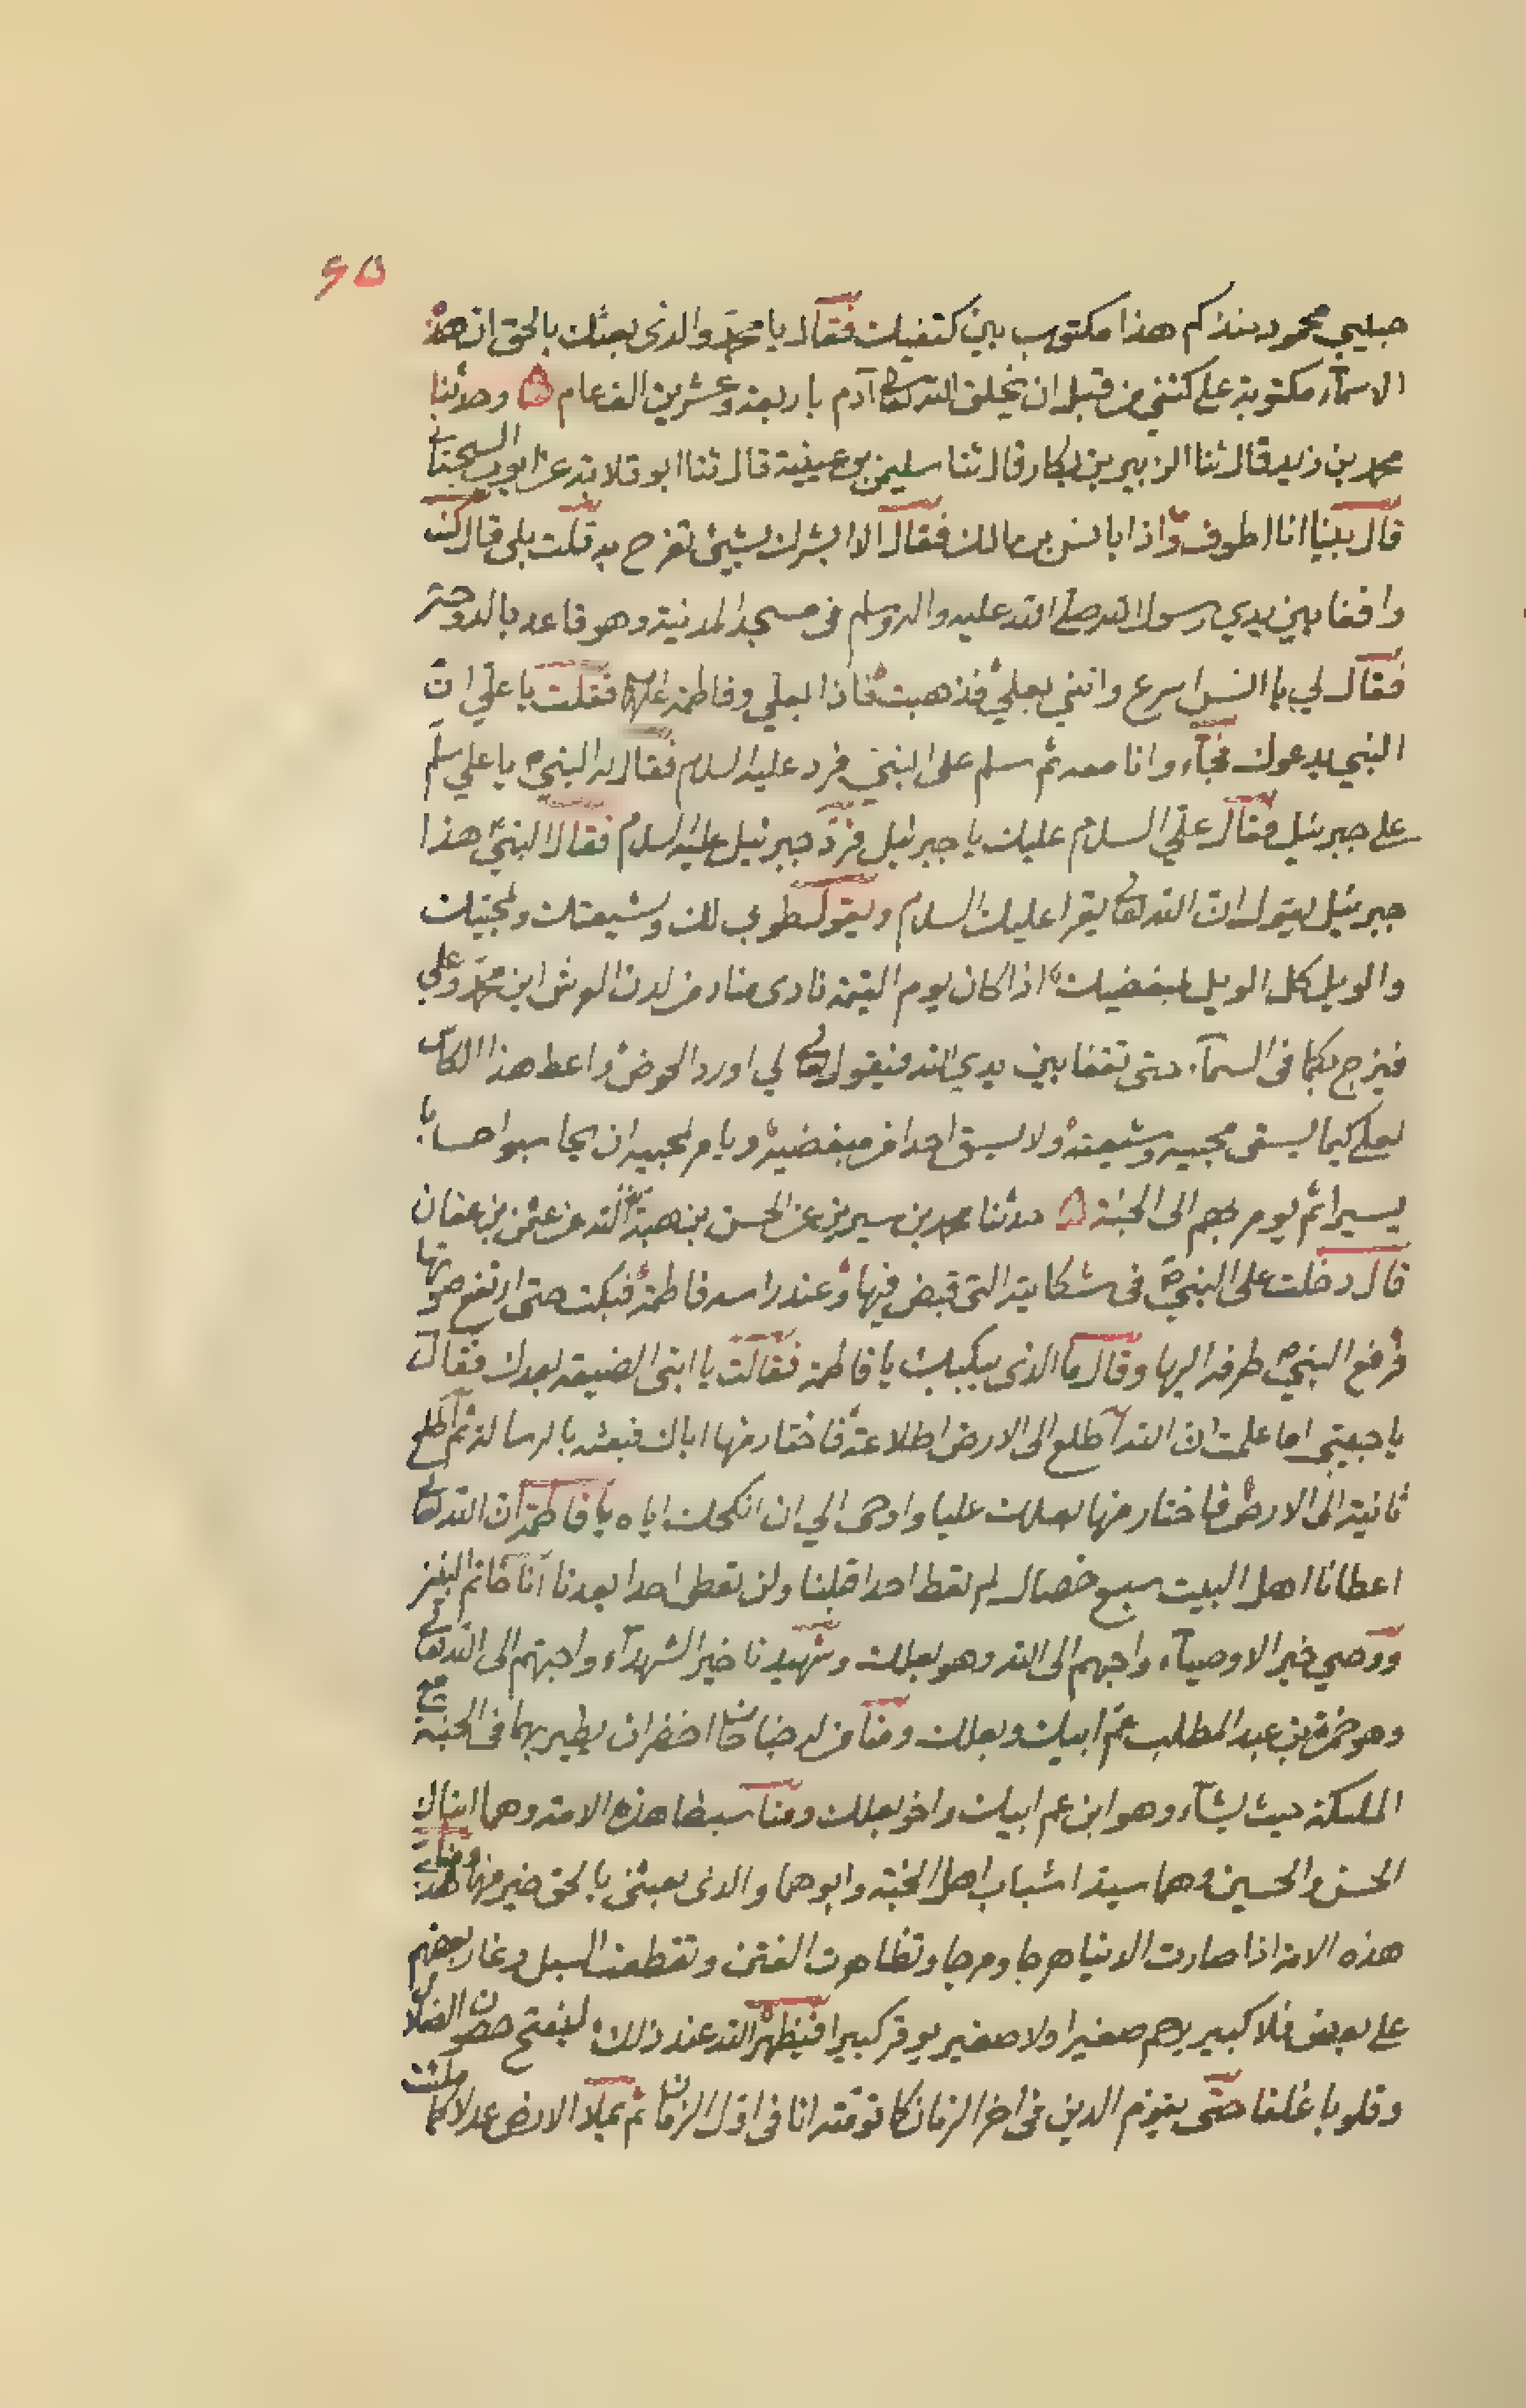 ٤٥
حبيبي محمود منذكم هذا مكتوب بين كتفيك فقال يا محمد والذى بعثك بالحق ان هذه
الاسمآء مكتوبة على كتفي من قبل ان يخلق الله تعالى آدم باربعة وعشرين الف عام وحدثنا
محمد بن زيد قال ثنا الزبير بن بكار قال ثنا سليمن بن عيينة قال ثنا ابو قلابة عن ايوب السجستاني
قال بينا انا اطوف واذا بانس بن مالك فقال الا ابشرك بشيئ تفرح به قلت بلى قال كنت
واقفا بين يدي رسول الله صلى الله عليه واله وسلم فى مسجد المدينة وهو قاعد بالروحة
فقال لي يا انس اسرع واتني بعلي فذهبت فاذا بعلي وفاطمة عليهما فقلت يا علي ان
النبي يدعوك فجآء وانا معه ثم سلم على النبي فرد عليه السلام فقال له النبي يا علي سلم
على جبرئيل فقال علي السلام عليك يا جبرئيل فرد جبرئيل عليه السلام فقال النبي هذا
جبرئيل يقول ان الله تعالى يقرا عليك السلام ويقول طوبى لك ولشيعتك ولمحبيك
والويل كل الويل لمبغضيك اذا كان يوم القيمة نادى مناد من لدن العرش اين محمد وعلي
فيزج بكما فى السمآء حتى تقفا بين يدي الله فيقول تعالى لي اورد الحوض واعط هذا الكاس
لعلي كيما يسقى محبيه وشيعته ولا يسق احدا من مبغضيه ويامر لمحبيه ان يحاسبوا حسابا
يسيرا ثم يومر بهم الى الجنة حدثنا محمد بن سيرين عن الحسن بن هبة الله عن عثمن بن عفان
قال دخلت على النبي فى شكايته التى قبض فيها وعند راسه فاطمة فبكت حتى ارتفع صوتها
فرفع النبي طرفه اليها وقال ما الذى يبكيك يا فاطمة فقالت يا ابتى الضيعة بعدك فقال
يا حبيبتي اما علمت ان الله اطلع الى الارض اطلاعة فاختار منها اباك فبعثه بالرسالة ثم اطلع
ثانية الى الارض فاختار منها بعلك عليا واوحى الي ان انكحك اياه يا فاطمة ان الله تعالى
اعطانا اهل البيت سبع خصال لم يعط احدا قبلنا ولن يعطى احدا بعدنا انا خاتم النبيين
ووصي خير الاوصيآء واحبهم الى الله وهو بعلك وشهيدنا خير الشهدآء واحبهم الى الله تعالى
وهو حمزة بن عبد المطلب عم ابيك وبعلك ومنا من له جناحان اخضران يطير بهما فى الجنة مع
الملئكة حيث يشآء وهو ابن عم ابيك واخو بعلك ومنا سبطا هذه الامة وهما ابناك
الحسن والحسين وهما سيدا شباب اهل الجنة وابوهما والذى بعثنى بالحق خير منهما ومنا
هذه الامة اذا صارت الدنيا هرجا ومرجا وتظاهرت الفتن وتقطعت السبل وغار بعضهم
على بعض فلا كبير يرحم صغيرا ولا صغير يوقر كبيرا فيظهر الله عند ذلك ليفتح حصون الضلال
وقلوبا غلفا حتى يقوم الدين فى اخر الزمان كما قوقته انا فى اول الزمان ثم يملا الارض عدلا كما ملئت